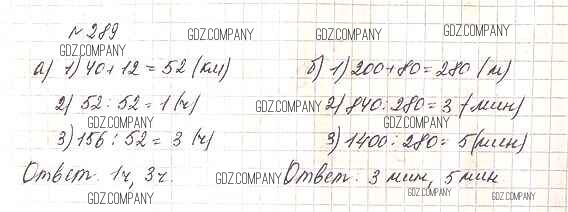 № 289
GDZ.COMPANY GDZ.COMPANY GDZ.COMPANY
GDZ.COMPANY
а) 1) 40 + 12 = 52 (км)
2) 52 : 52 = 1 (ч)
GDZ.COMPANY
3) 156 : 52 = 3 (ч)
Ответ: 1ч, 3ч.
GDZ.COMPANY
б) 1) 200 + 80 = 280 (м)
GDZ.COMPANY
2) 840 : 280 = 3 (мин)
GDZ.COMPANY
3) 1400 : 280 = 5 (мин)
GDZ.COMPANY
Ответ: 3 мин, 5 мин
GDZ.COMPANY GDZ.COMPANY